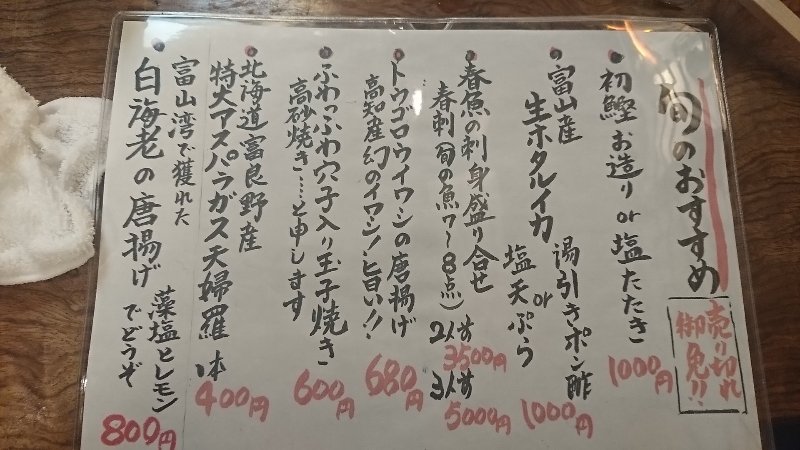 旬のおすすめ
売り切れ
御免!!
初鰹 お造り or 塩たたき
1000円
富山産
生ホタルイカ
湯引きポン酢
or
塩天ぷら
1000円
春魚の刺身盛り合せ
春刺 旬の魚(7〜8点)
2人前
3500円
3人前
5000円
トウゴロウイワシの唐揚げ
高知産 幻のイワシ!旨い!!
680円
ふわっふわ穴子入り玉子焼き
高砂焼き…と申します
600円
北海道富良野産
特大アスパラガス天婦羅
1本
400円
富山湾で獲れた
白海老の唐揚げ
藻塩とレモン
でどうぞ
800円